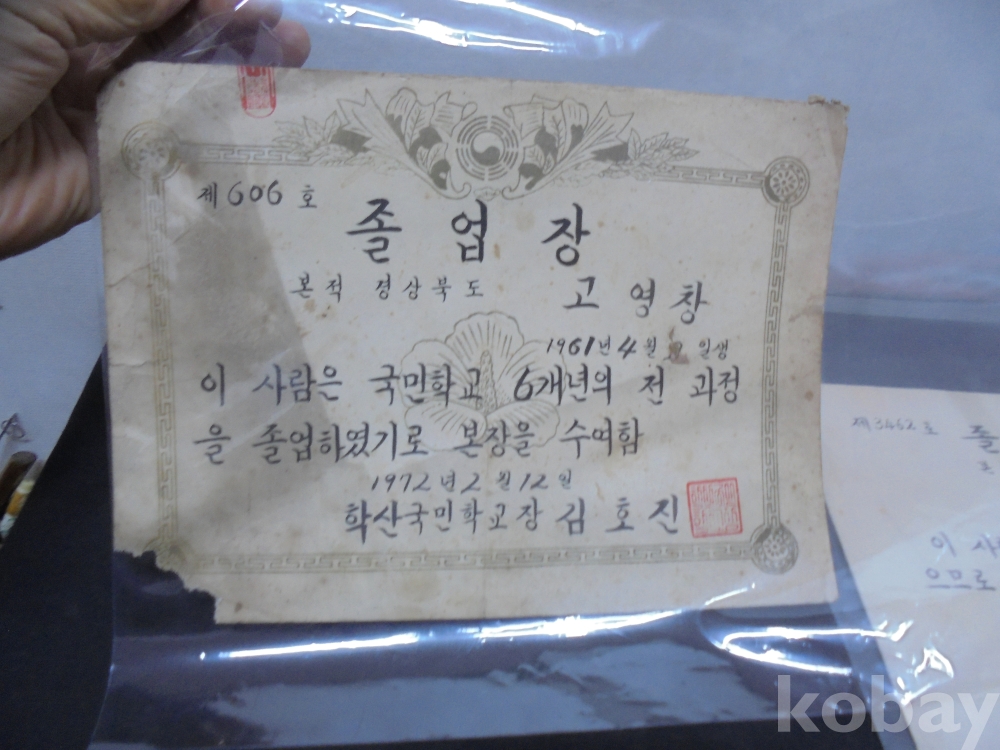 제 606 호
졸업장
본적 경상북도
고영창
1961년 4월 일생
이 사람은 국민학교 6개년의 전 과정
을 졸업하였기로 본장을 수여함
1972년 2월 12일
학산국민학교장 김호진
제3462호
졸
이 사
으므로
kobay